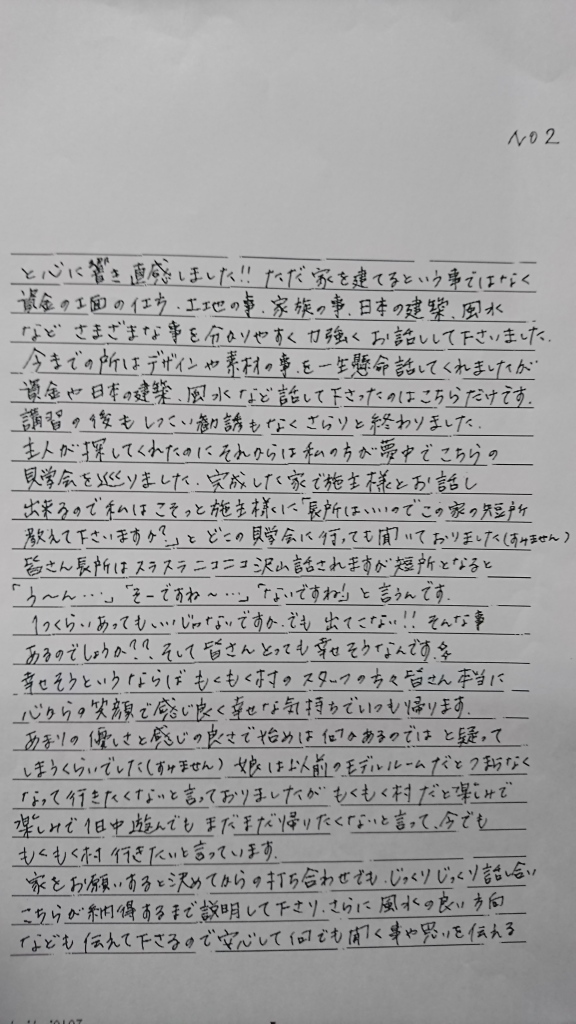 NO2
と心に響き直感しました!! ただ家を建てるという事ではなく
資金の工面の仕方、土地の事、家族の事、日本の建築、風水
など さまざまな事を分かりやすく力強く お話しして下さいました.
今までの所はデザインや素材の事を一生懸命話してくれましたが
資金や日本の建築、風水など話して下さったのはこちらだけです.
講習の後もしつこい勧誘もなくさらりと終わりました.
主人が探してくれたのにそれからは私の方が夢中でこちらの
見学会を巡りました. 完成した家で施主様とお話し
出来るので私はこそっと施主様に「長所はいいのでこの家の短所
教えて下さいますか?」とどこの見学会に行っても聞いておりました(すみません)
皆さん長所はスラスラニコニコ沢山話されますが短所となると
「う〜ん…」「そーですね〜…」「ないですね!」と言うんです.
1つくらいあってもいいじゃないですか.でも 出てこない!! そんな事
あるのでしょうか?? そして皆さんとっても幸せそうなんです
幸せそうというならば もくもく村の スタッフの方々 皆さん本当に
心からの笑顔で感じ良く幸せな気持ちでいつも帰ります.
あまりの優しさと感じの良さで始めは何かあるのではと疑って
しまうくらいでした(すみません) 娘は以前のモデルルームだとつまらなく
なって行きたくないと言っておりましたが もくもく村だと楽しみで
楽しみで1日中遊んでも まだまだ帰りたくないと言って、今でも
もくもく村行きたいと言っています.
家をお願いすると決めてからの打ち合わせでも、じっくりじっくり話し合い
こちらが納得するまで説明して下さり、さらに風水の良い方向
なども伝えて下さるので安心して何でも聞く事や思いを伝える